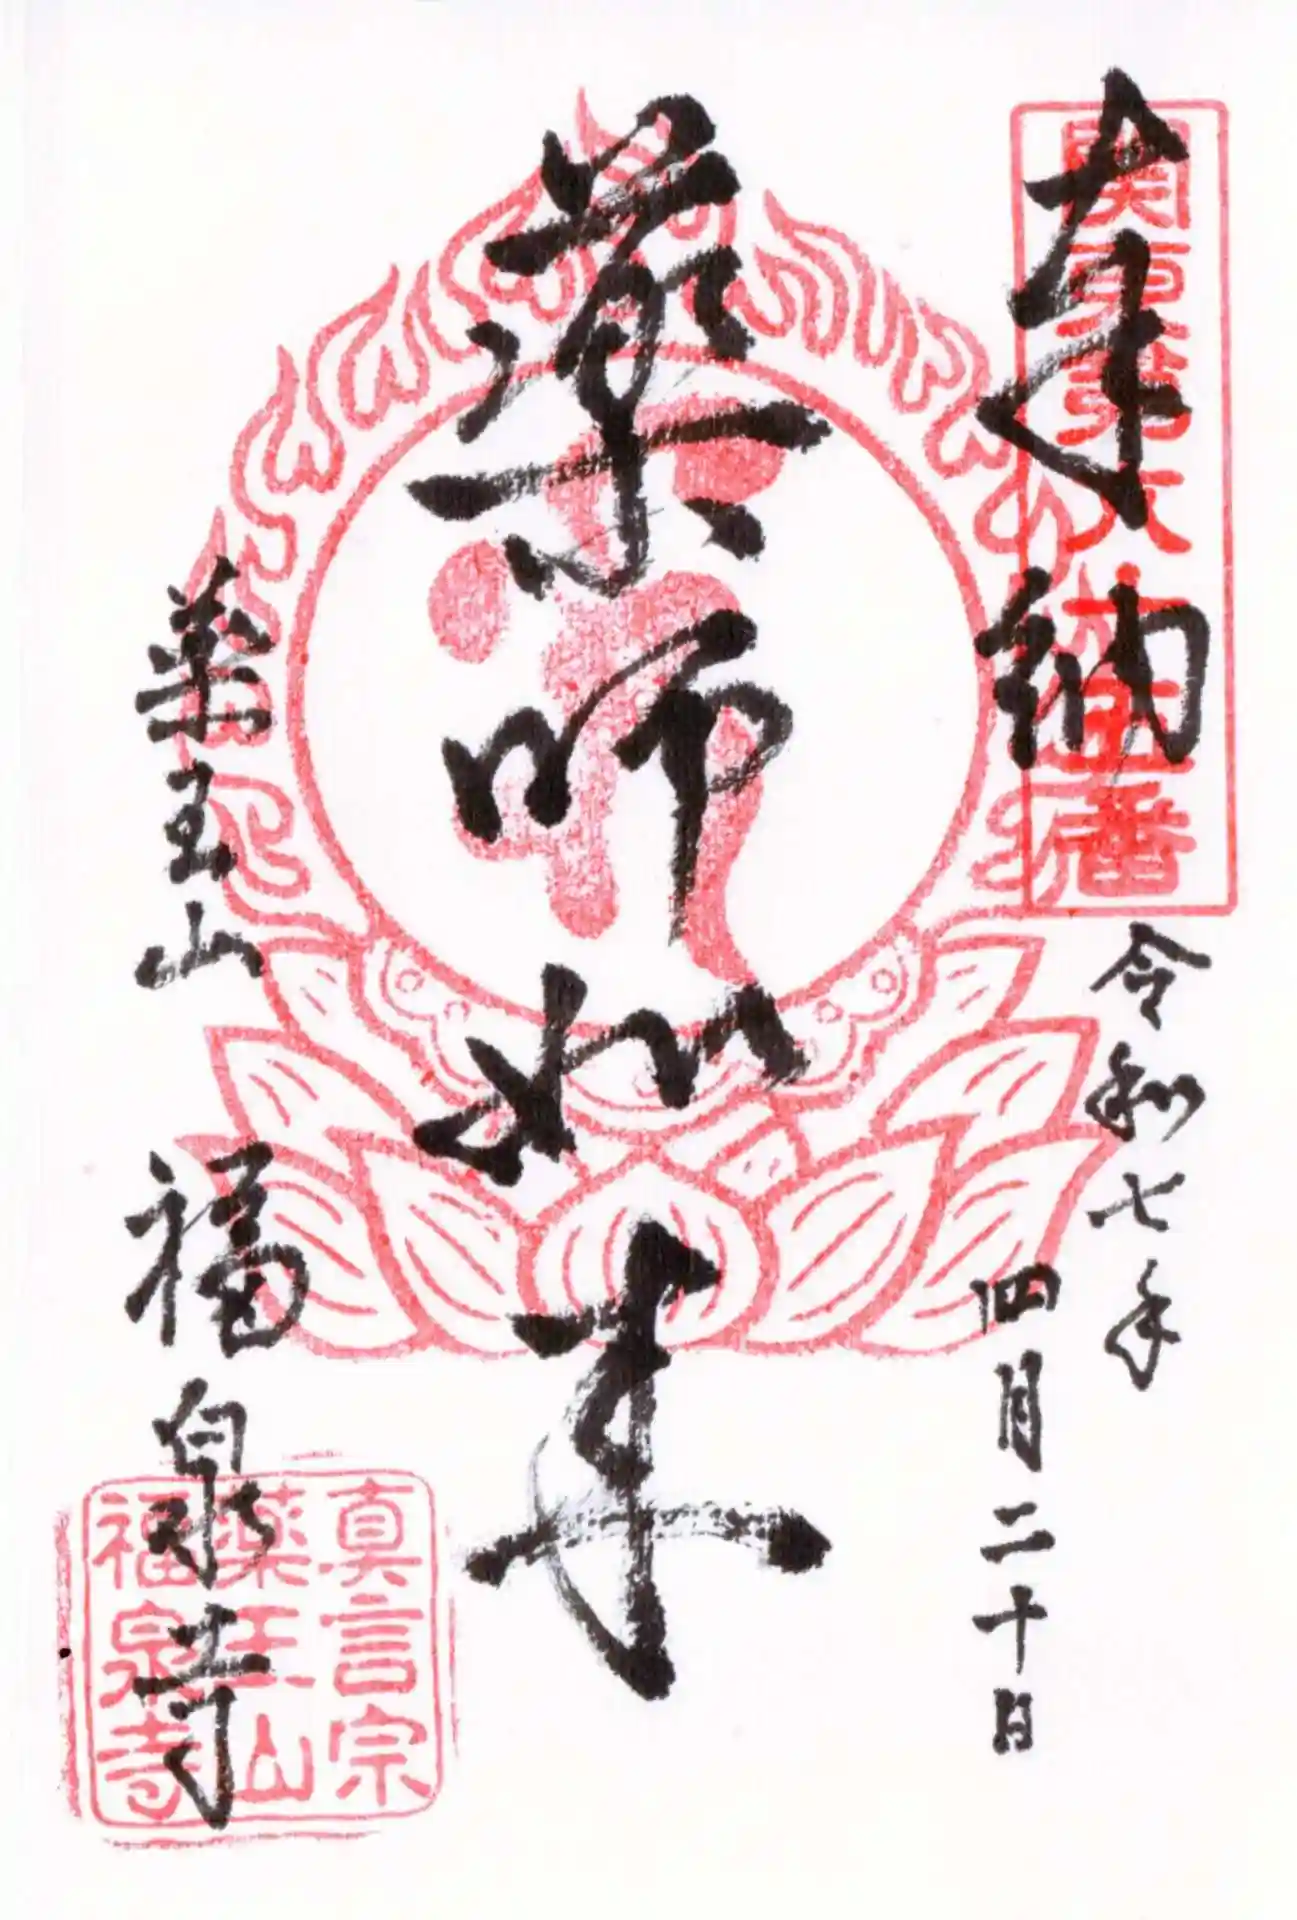 奉納
関東第六十五番
令和七年
四月二十日
薬師如来
薬王山 福泉寺
真言宗
薬王山
福泉寺